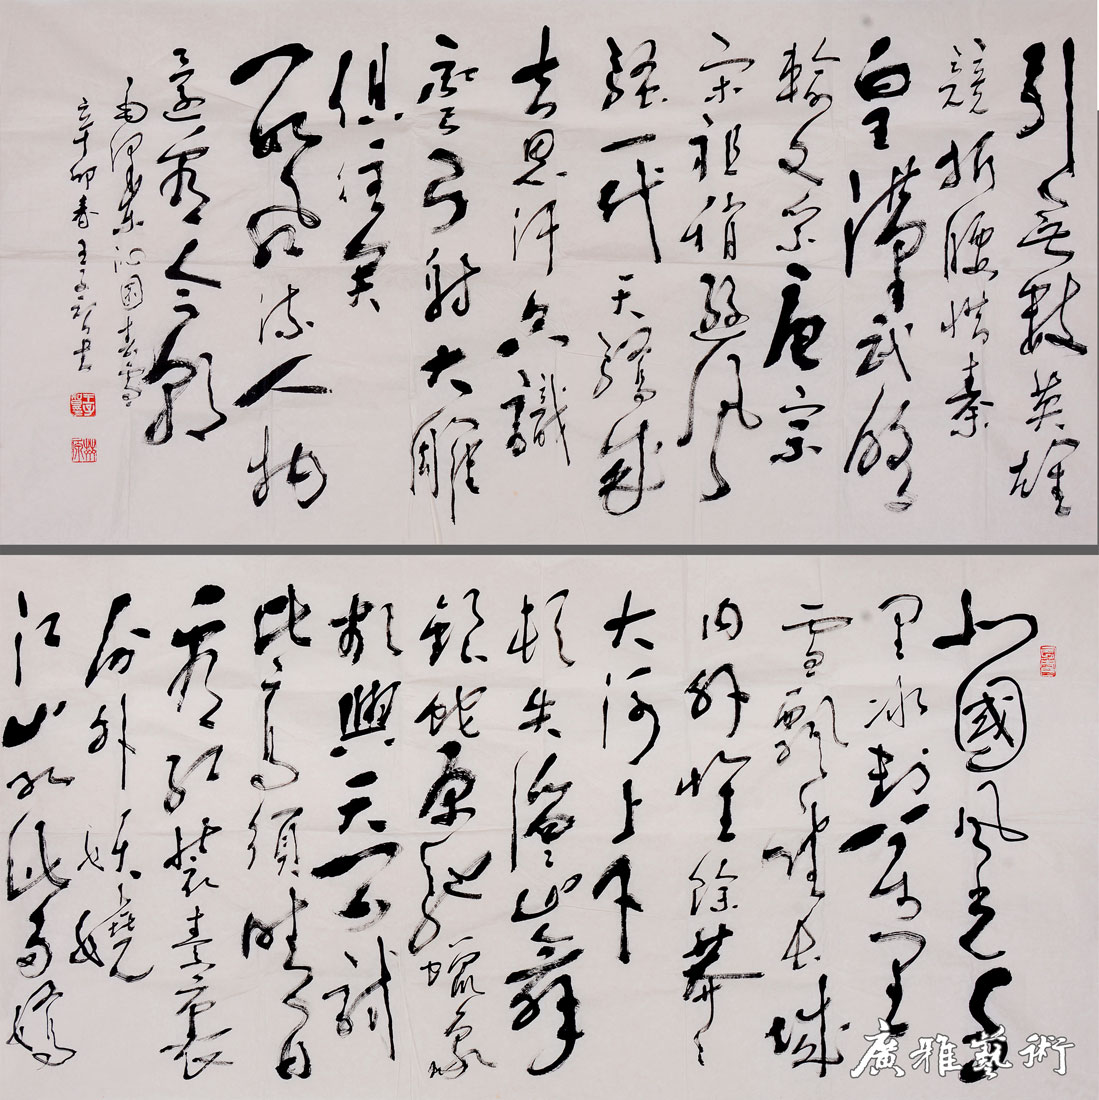 北國風光千
里冰封万里
雪飄望長城
内外惟餘莽々
大河上下
頓失滔々山舞
銀蛇原馳蠟象
欲與天公試
比高須晴日
看紅裝素裹
分外妖嬈
江山如此多嬌
引無數英雄
競折腰惜秦
皇漢武略
輸文采唐宗
宋祖稍遜風
騷一代天驕成
吉思汗只識
彎弓射大雕
俱往矣
數風流人物
還看今朝
毛澤東沁園春雪
辛卯春王
廣雅藝術